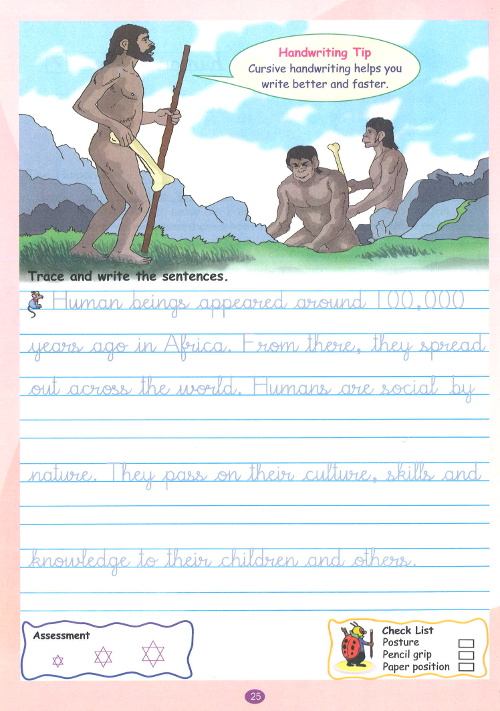 Handwriting Tip
Cursive handwriting helps you
write better and faster.
Trace and write the sentences.
Human beings appeared around 100,000
years ago in Africa. From there, they spread
out across the world. Humans are social by
nature. They pass on their culture, skills and
knowledge to their children and others.
Assessment
Check List
Posture
Pencil grip
Paper position
25